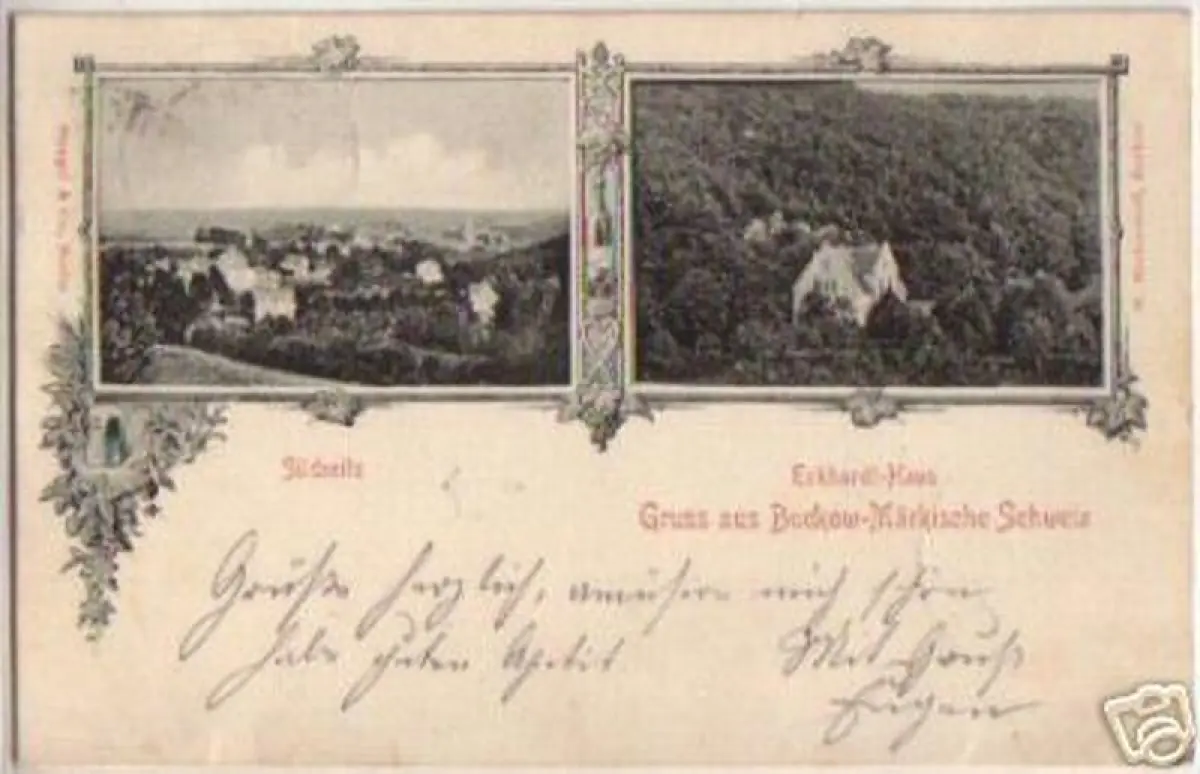 Südseite
Eckhardt-Haus
Gruss aus Buckow-Märkische Schweiz
Grüße herzlich, amüsire mich schön
habe guten Apetit
Mit Gruß
Eugen